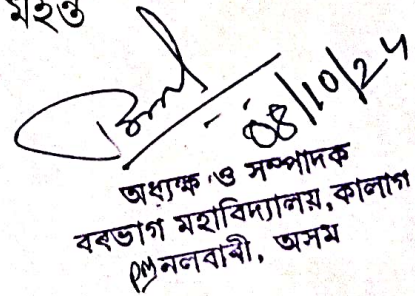 মহন্ত
08/10/24
অধ্যক্ষ ও সম্পাদক
বৰভাগ মহাবিদ্যালয়, কালাগ
নলবাৰী, অসম